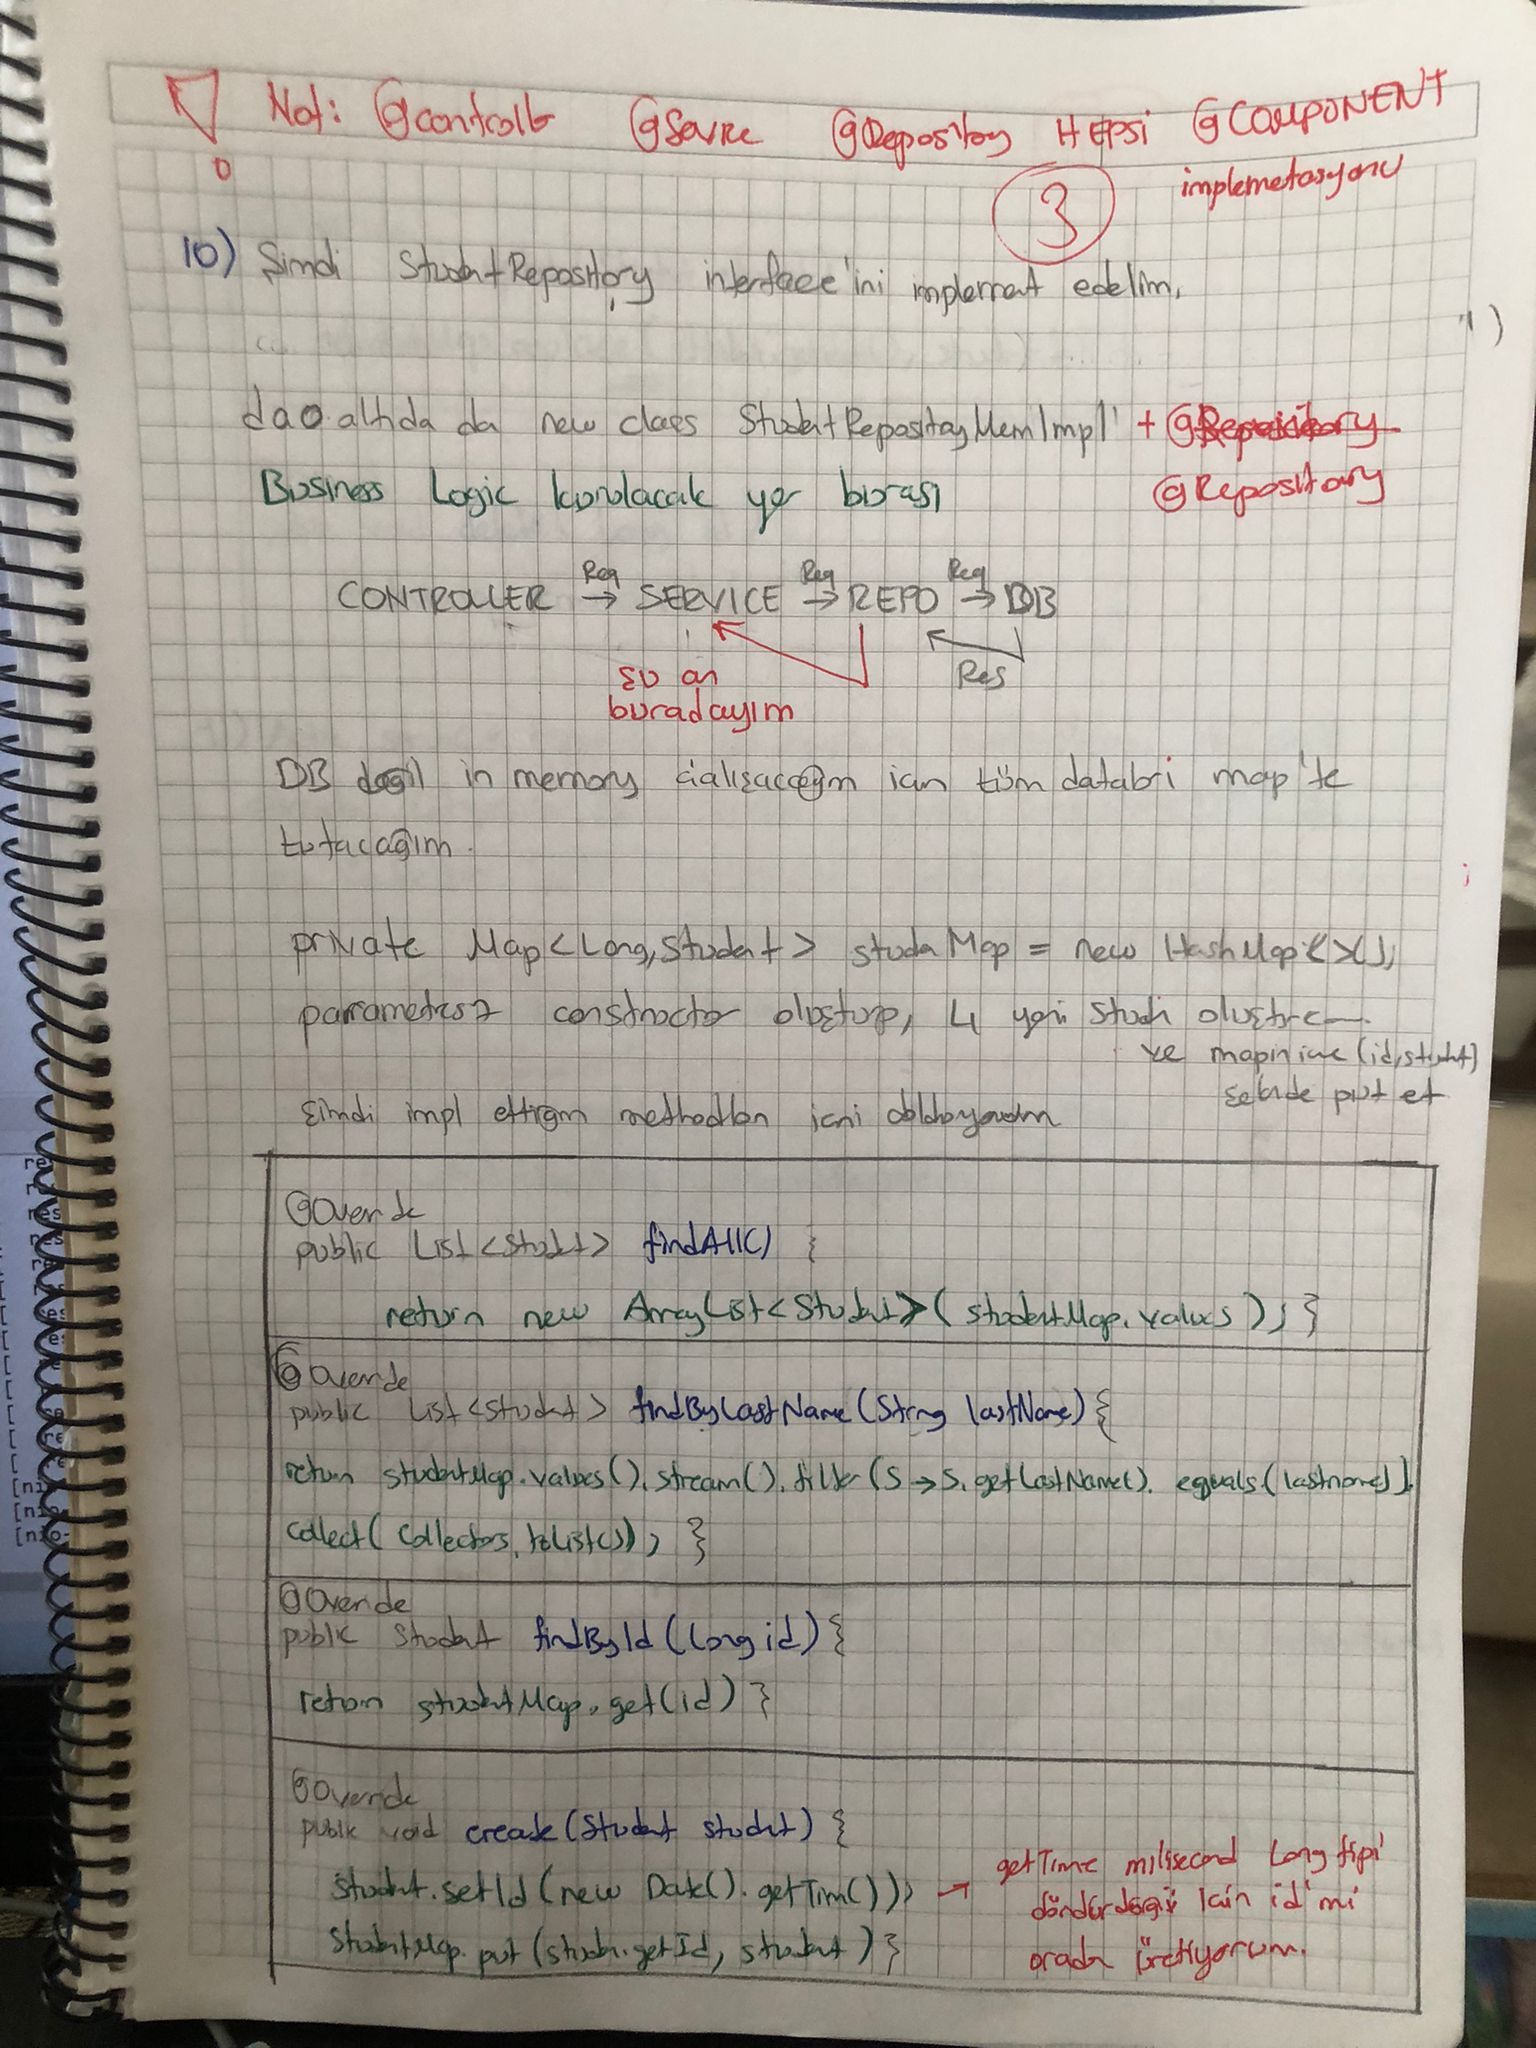 Not: @controller @Service @Repository HEPSi @COMPONENT
implemetasyonu
3
10) Şimdi StudentRepository interface'ini implement edelim.
dao altında da new class StudentRepositoryMemImpl + @Repository
Business Logic konulacak yer burası @Repository
Req Req Req
CONTROLLER → SERVICE → REPO → DB
Res
şu an
buradayım
DB değil in memory çalışacağım için tüm databri map'te
tutacağım.
private Map<Long,Student> studentMap = new HashMap<>();
parametresiz constructor oluşturup, 4 yeni Student
ve mapin içine (id,student)
şekilde put et
şimdi impl ettiğim methodların içini dolduruyorum
@Override
public List<Student> findAll() {
return new ArrayList<Student>(studentMap.values); }
@Override
public List<Student> findByLastName(String lastName){
return studentMap.values().stream().filter(s→s.getLastName().equals(lastname)).
collect(Collectors.toList()); }
@Override
public Student findById(Long id){
return studentMap.get(id) }
@Override
public void create(Student student) {
student.setId(new Date().getTime()); → getTime milisecond Long tipi
döndürdüğü için id'mi
studentMap.put(student.getId, student) } orada üretiyorum.